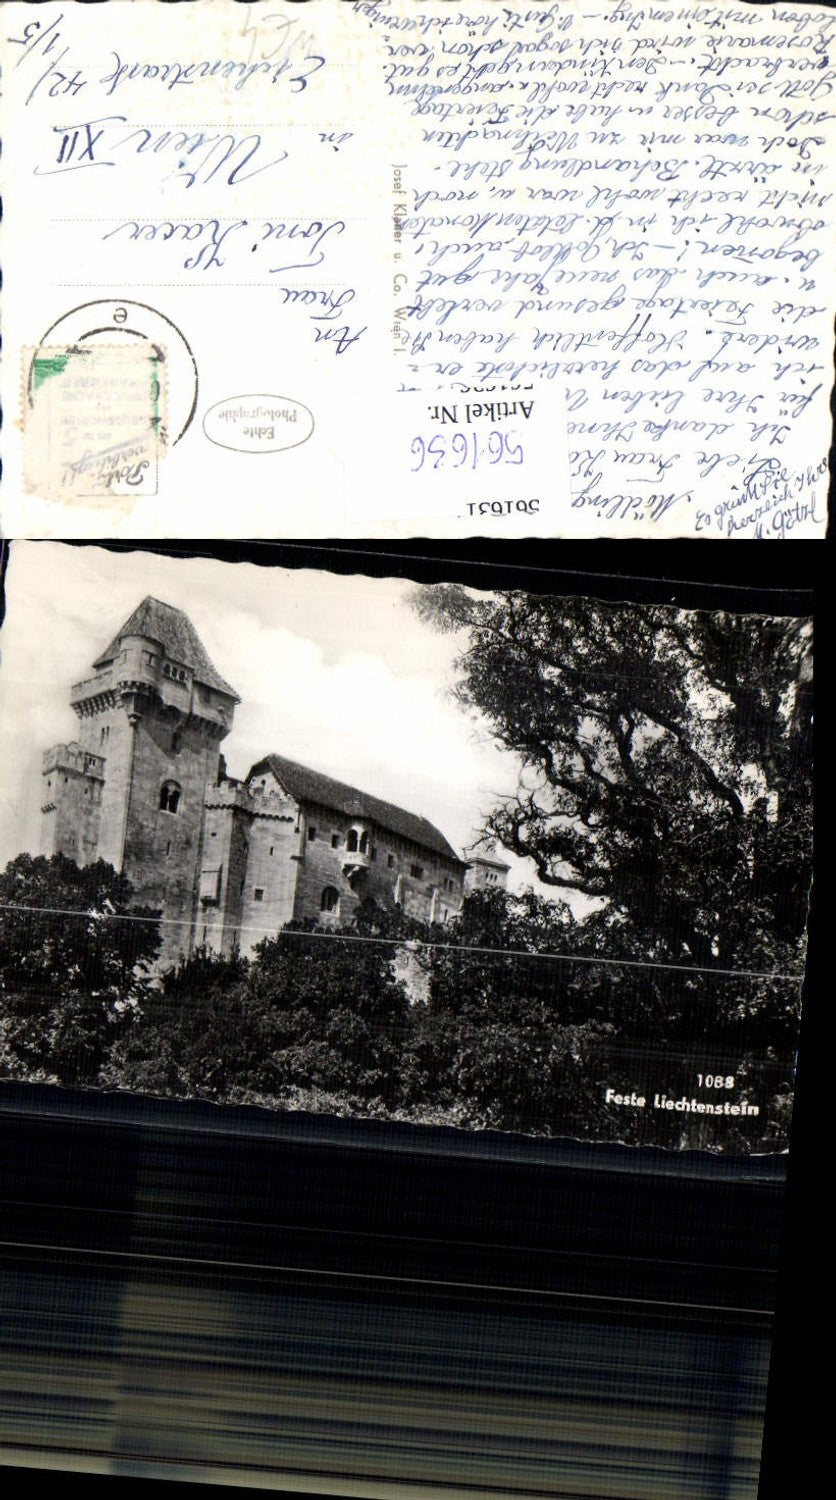 561631
Artikel Nr.
561636
Mödling
Liebe Frau
Ich danke Ihnen
für Ihre lieben
ich auf das herzlichste er-
widere. Hoffentlich haben Sie
die Feiertage gesund verlebt
u. auch das neue Jahr gut
begonnen! – Ich Gottlob auch,
obwohl ich in d. letzten Monaten
nicht recht wohl war u. noch
in ärztl. Behandlung stehe.
Doch war mir zu Weihnachten
schon besser u. habe die Feiertage
Gott sei Dank recht wohl u. angenehm
verbracht. – Den Kindern geht es gut.
Rosemarie wird sich sogar schon ver-
loben
Es grüßt Sie
herzlich Ihre
M. Götzl
Josef Klaner u. Co. Wien I.
Echte
Photographie
An
Frau
Toni Kacer
in
Wien XII
Eichenstrasse 42/
1/5
1088
Feste Liechtenstein